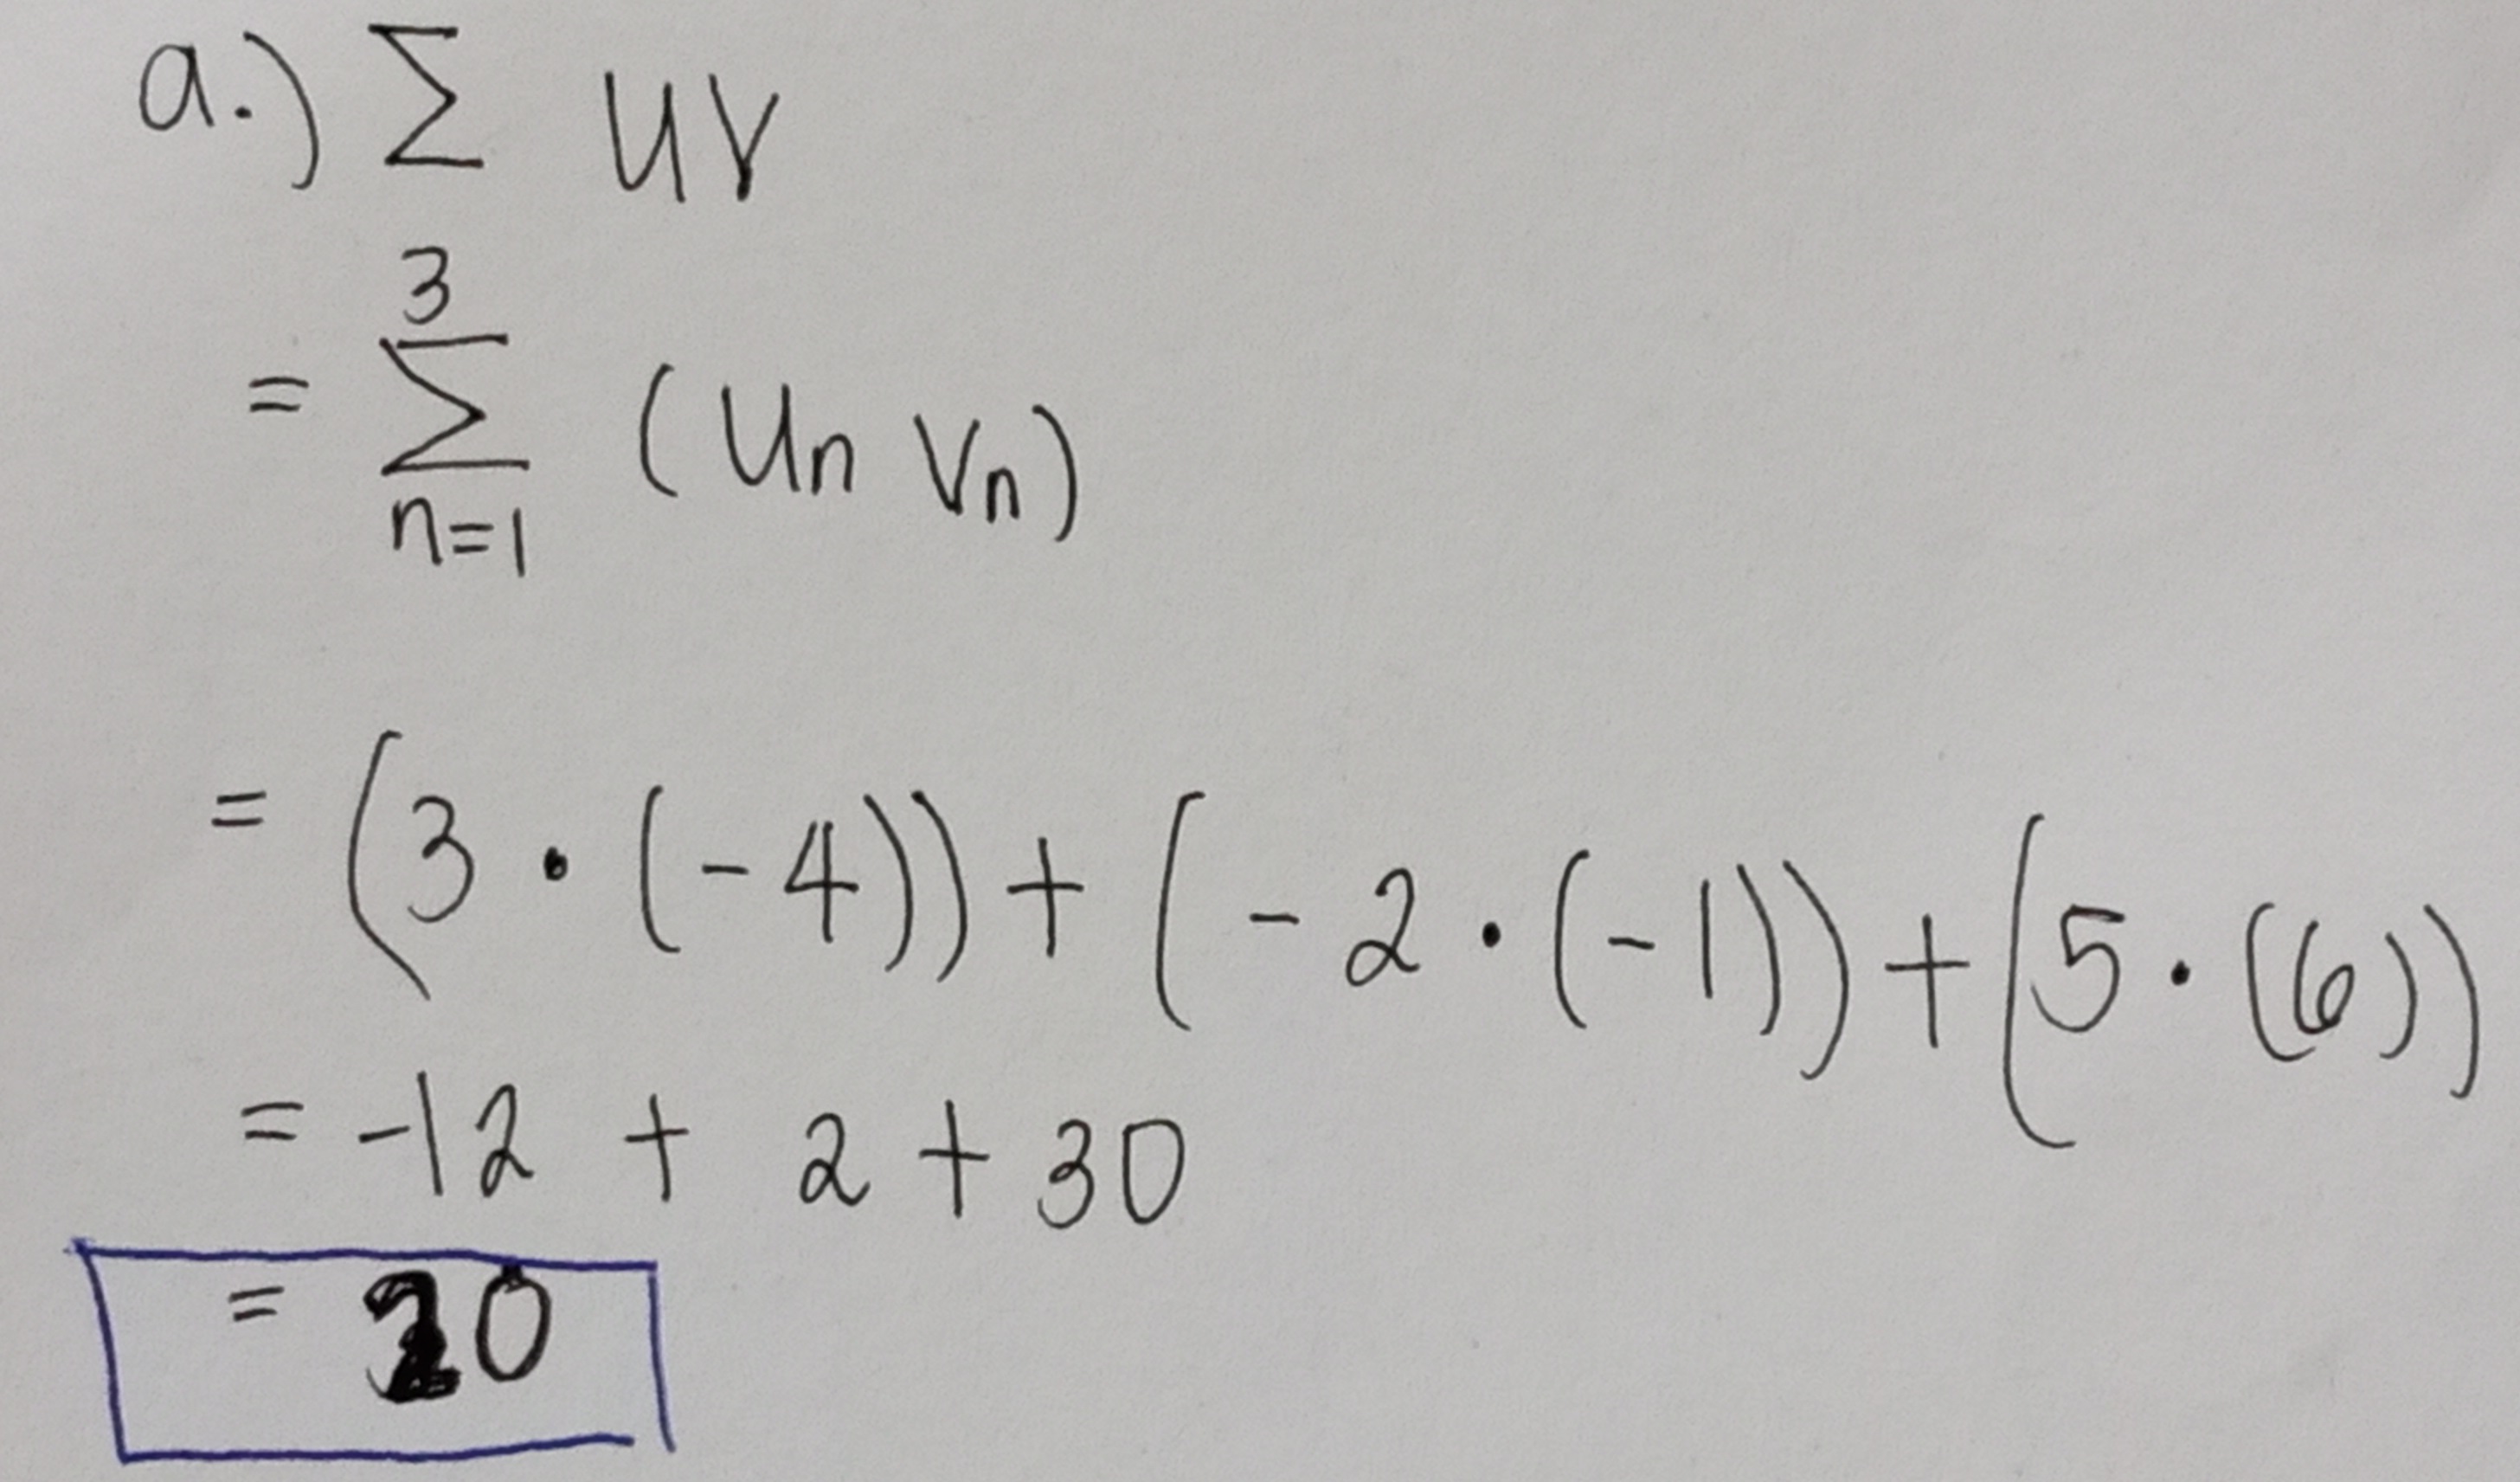 a.) Σ UV
= 3 Σ n=1 (Un Vn)
= (3 · (-4)) + (-2 · (-1)) + (5 · (6))
= -12 + 2 + 30
= 20